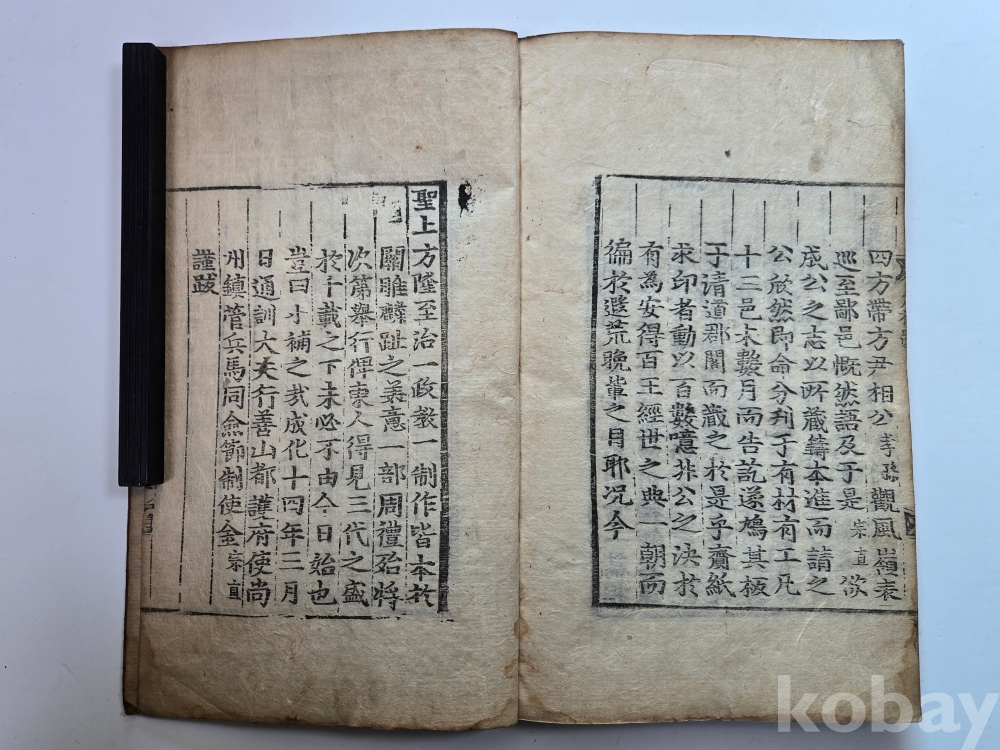 四方帶方尹相公孝孫觀風嶺表
巡至鄙邑慨然語及于是宗直欲
成公之志以所藏鑄本進而請之
公欣然即命分刋于有材有工凡
十二邑未數月而告訖遂鳩其板
于清道郡閣而藏之於是乎齎紙
求印者動以百數噫非公之決於
有為安得百王經世之典一朝而
徧於遐荒晚輩之目耶况今
聖上方隆至治一政敎一制作皆本於
關雎麟趾之美意一部周禮殆將
次第舉行俾東人得見三代之盛
於千載之下未必不由今日始也
豈曰小補之㦲成化十四年三月
日通訓大夫行善山都護府使尚
州鎮管兵馬同僉節制使金宗直
謹跋
kobay